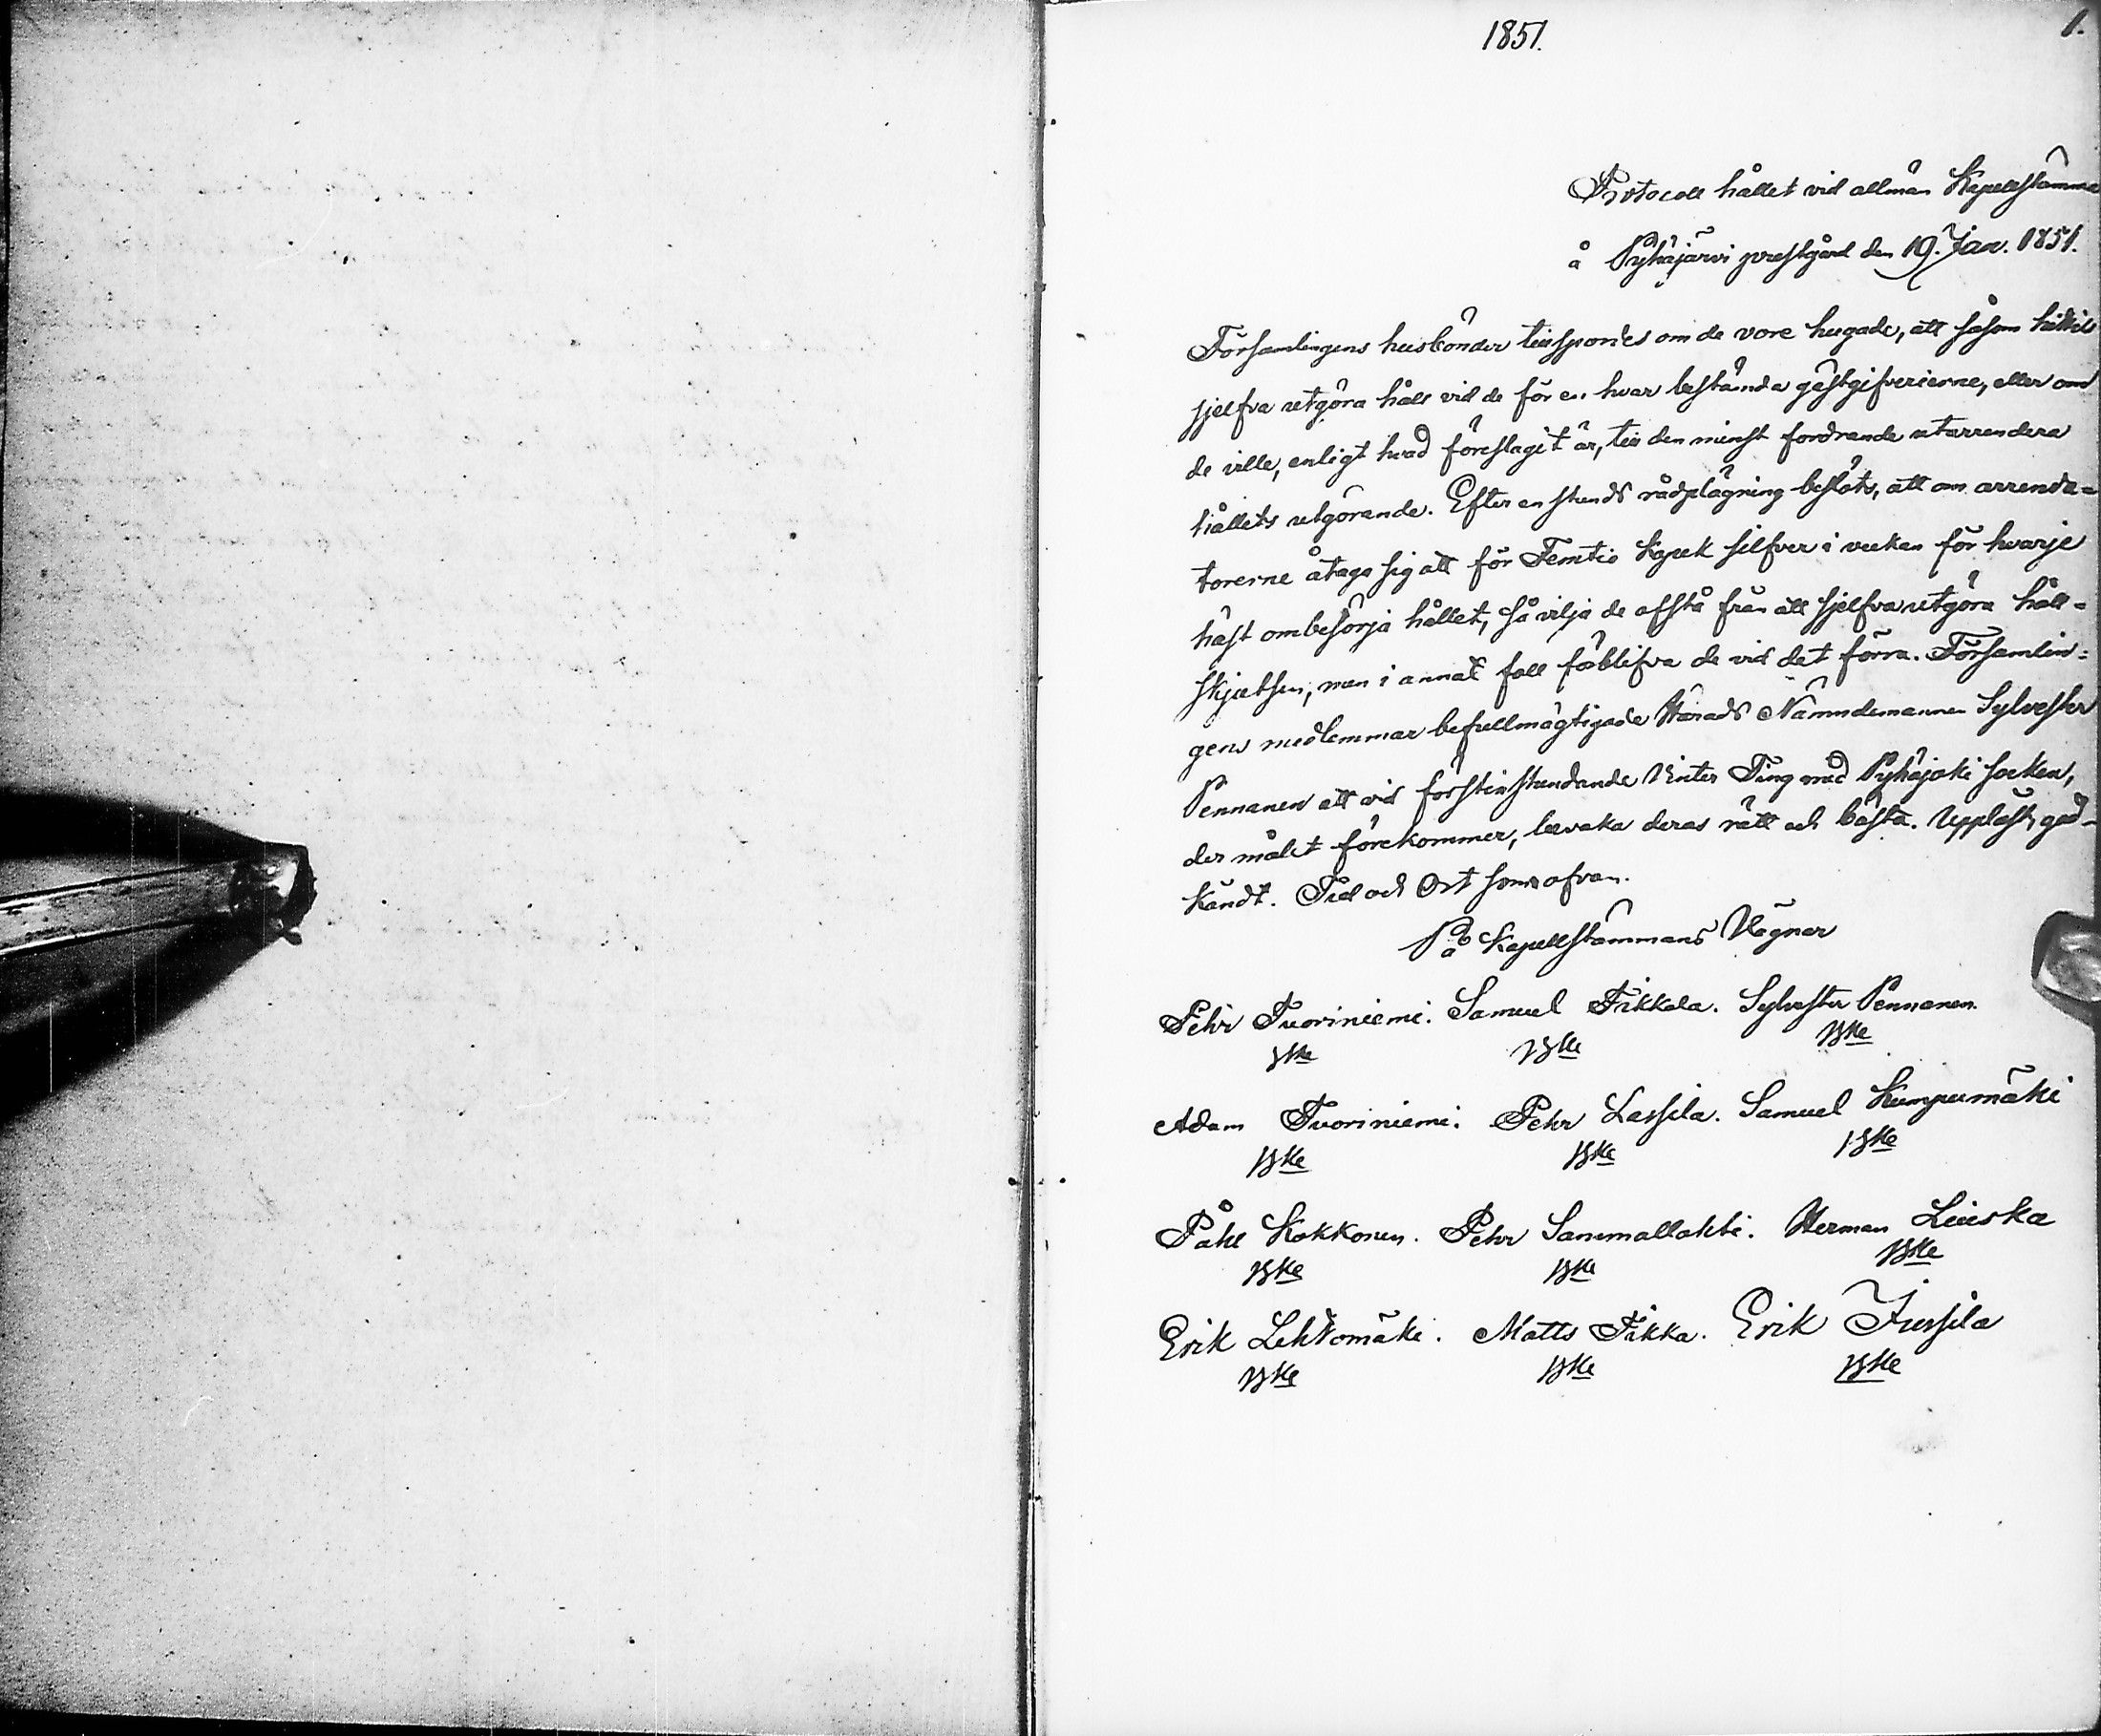 1851.
1.
Protocoll hållet vid allmän Kapellstämma
å Pyhäjärvi prestgård den 19. Jan. 1851.
Församlingens husbönder tillspordes om de vore hugade, att såsom hittils
sjelfva utgöra håll vid de för en hvar bestämda gästgifverierne, eller om
de ville, enligt hvad föreslagit är, till den minst fordrande utarrendera
hållets utgörande. Efter en stunds rådplägning beslöts, att om arrenda=
torerne åtaga sig att för Femtio Kopek silfver i veckan för hvarje
häst ombesörja hållet, så vilja de afstå från att sjelfva utgöra håll=
skjutsen, men i annat fall förblifva de vid det förra. Församlin=
gens medlemmar befullmägtigade Härads Nämndemannen Sylvester
Pennanen att vid förstinstundande Vinter Ting med Pyhäjoki socken,
der målet förekommer, bevaka deras rätt och bästa. Uppläst, god-
kändt. Tid och Ort som ofvan.
På Kapellstämmans Vägnar
Pehr Tuoriniemi. Samuel Tikkala. Sylvester Pennanen.
Adam Tuoriniemi. Pehr Lassila. Samuel Kumpumäki
Påhl Kokkonen. Pehr Sammallahti. Herman Liuska
Erik Lehtomäki. Matts Tikka. Erik Jussila